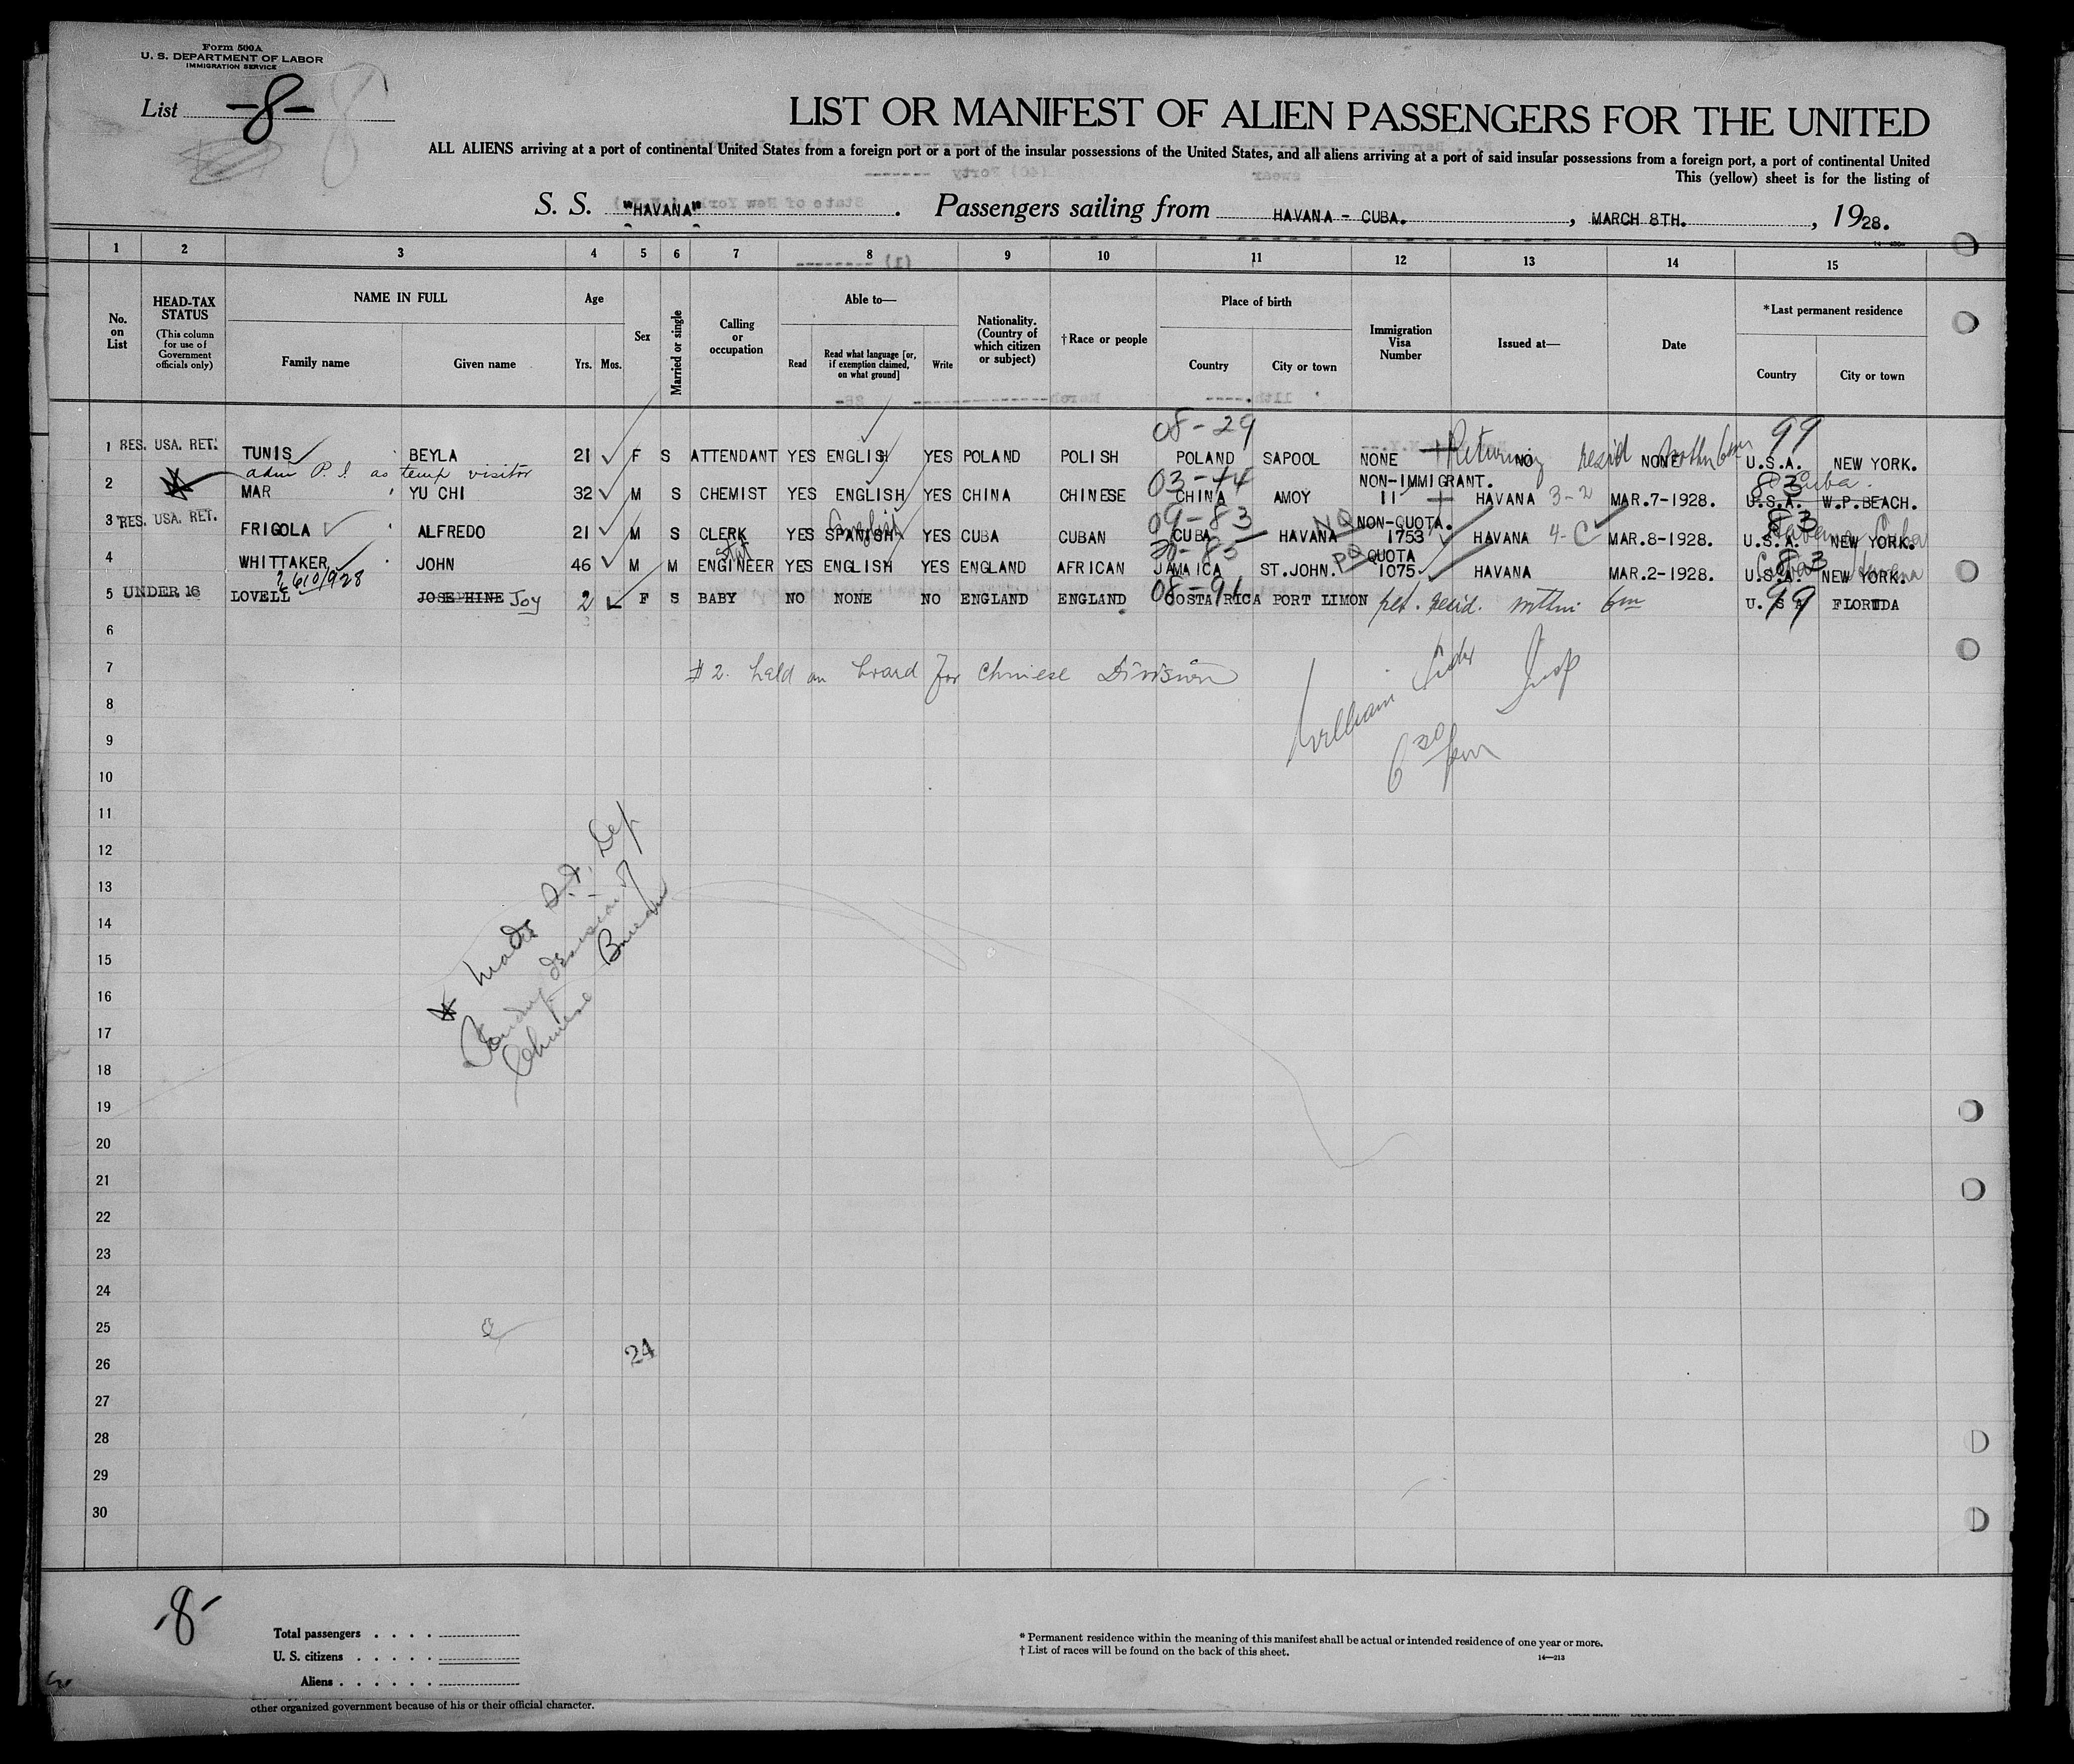 Form 500A
U. S. DEPARTMENT OF LABOR
IMMIGRATION SERVICE
List -8-
8
LIST OR MANIFEST OF ALIEN PASSENGERS FOR THE UNITED
ALL ALIENS arriving at a port of continental United States from a foreign port or a port of the insular possessions of the United States, and all aliens arriving at a port of said insular possessions from a foreign port, a port of continental United
This (yellow) sheet is for the listing of
S. S. "HAVANA". Passengers sailing from HAVANA - CUBA., MARCH 8TH., 1928.
1 2 3 4 5 6 7 8 9 10 11 12 13 14 15
No. on List
HEAD-TAX STATUS (This column for use of Government officials only)
NAME IN FULL Family name Given name
Age Yrs. Mos.
Sex
Married or single
Calling or occupation
Able to— Read Read what language [or, if exemption claimed, on what ground] Write
Nationality. (Country of which citizen or subject)
†Race or people
Place of birth Country City or town
Immigration Visa Number
Issued at—
Date
*Last permanent residence Country City or town
08-29 99
1 RES. USA. RET. TUNIS BEYLA 21 F S ATTENDANT YES ENGLISH YES POLAND POLISH POLAND SAPOOL NONE Returning NO resid NONE within 6m U.S.A. NEW YORK.
adm P. I. as temp visitor 03-14 NON-IMMIGRANT. 83 Cuba.
2 MAR YU CHI 32 M S CHEMIST YES ENGLISH YES CHINA CHINESE CHINA AMOY 11 HAVANA 3-2 MAR.7-1928. U.S.A. W.P.BEACH.
English 09-83 NQ NON-QUOTA. 83 Havana Cuba
3 RES. USA. RET. FRIGOLA ALFREDO 21 M S CLERK YES SPANISH YES CUBA CUBAN CUBA HAVANA 1753 HAVANA 4-C MAR.8-1928. U.S.A. NEW YORK.
PQ QUOTA Cuba 83 Havana
4 WHITTAKER JOHN 46 M M ENGINEER YES ENGLISH YES ENGLAND AFRICAN JAMAICA ST.JOHN. 1075 HAVANA MAR.2-1928. U.S.A. NEW YORK.
08-91 99
5 UNDER 16 LOVELL JOSEPHINE Joy 2 F S BABY NO NONE NO ENGLAND ENGLAND COSTA RICA PORT LIMON ret. resid. within 6m U.S.A FLORIDA
6
7 #2. held on board for Chinese Division
William Insp
8
9 6 30 pm
10
11
12
13
14
15
16
17
18
19
20
21
22
23
24
25
26
27
28
29
30
Pending decision of
Chinese Bureau
24
-8-
Total passengers
U. S. citizens
Aliens
* Permanent residence within the meaning of this manifest shall be actual or intended residence of one year or more.
† List of races will be found on the back of this sheet.
14—213
other organized government because of his or their official character.